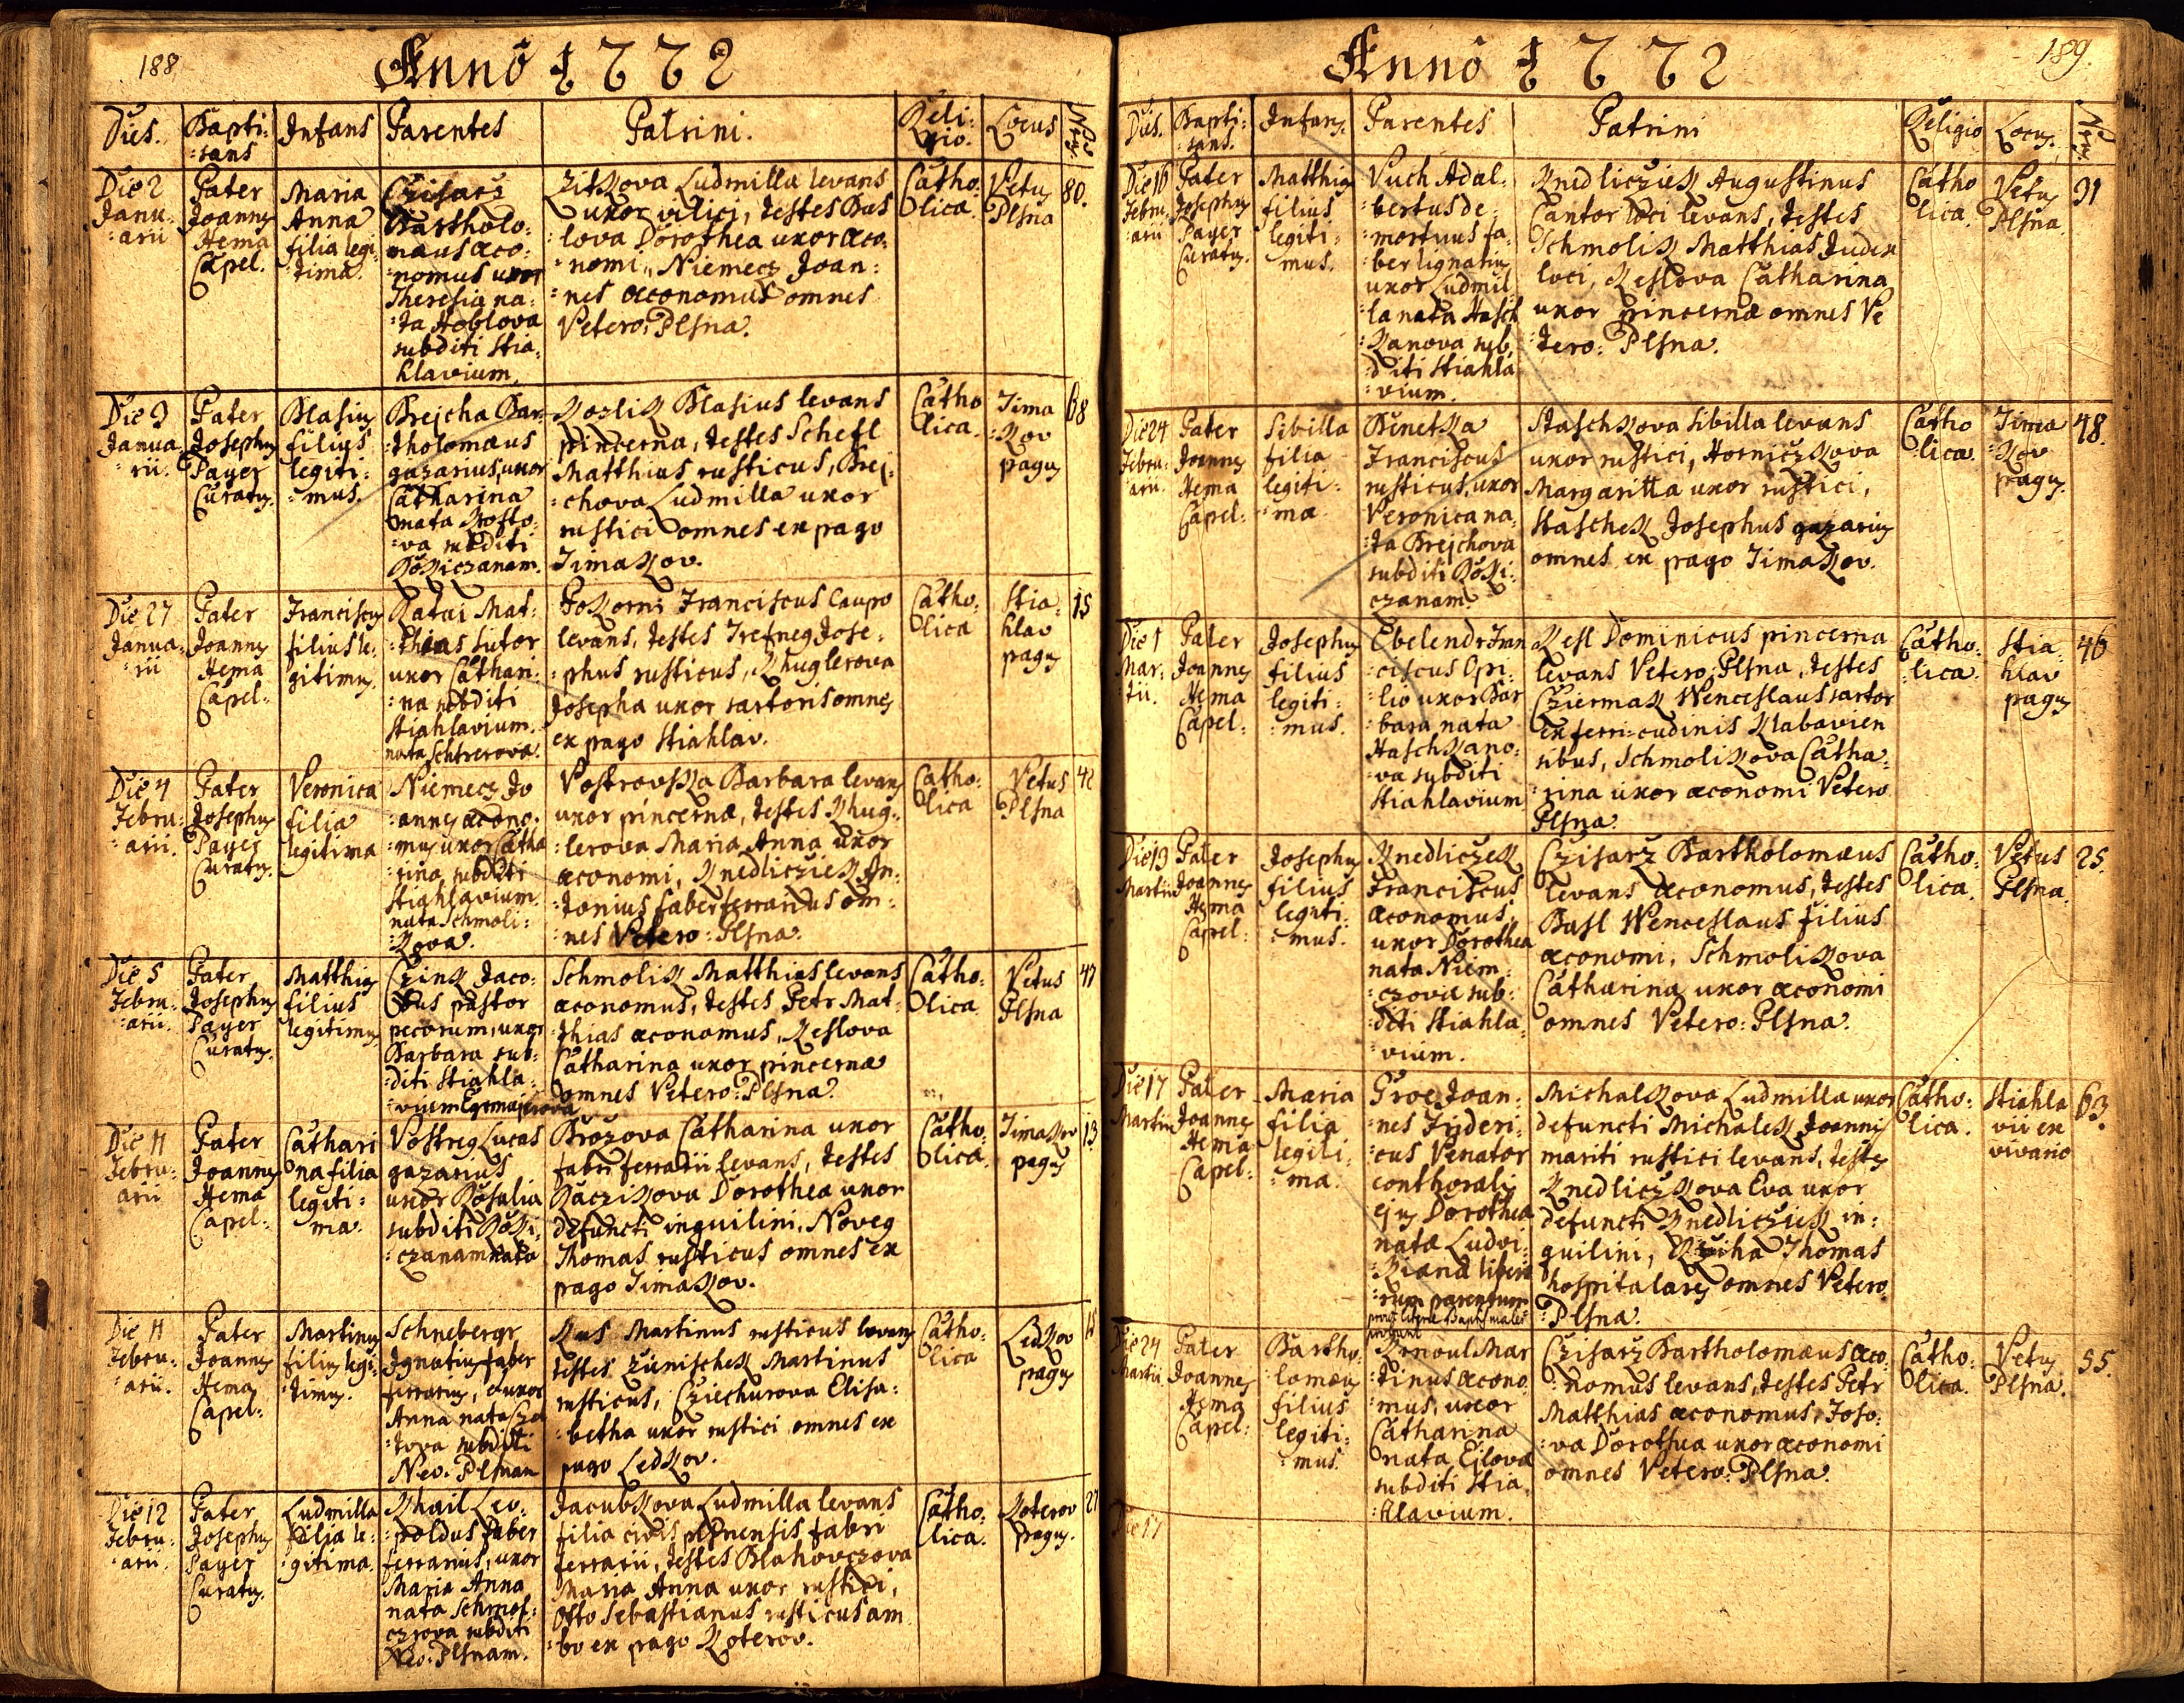 188
Anno 1772
Dies.
Bapti:
:sans
Infans
Parentes
Patrini.
Reli:
gio.
Locus
Nrus
Die 2
Janu:
:arii
Pater
Joannes
Hema
Capel.
Maria
Anna
filia legi:
:tima.
Czisarz
Bartholo:
:maus œco:
:nomus uxor
Theresia na:
:ta Hoblova
subditi Stia:
hlavium.
Zitkova Ludmilla levans
uxor vilici, testes Bas
lova Dorothea uxor œco:
:nomi, Niemecz Joan:
:nes œconomus omnes
Vetero: Plsna.
Catho:
lica.
Vetus
Plsna
80.
Die 9
Janua
:rii.
Pater
Josephus
Payer
Curatus.
Blasius
filius
legiti:
:mus.
Brejcha Bar:
:tholomæus
gazarius, uxor
Catharina
nata
:va subditi
Rokiczanam.
Kozlik Blasius levans
pincerna, testes Schefl
Matthias rusticus, Brej:
:chova Ludmilla uxor
rustici omnes ex pago
Timakov.
Catho
lica.
Tima
:kov
pagus
68
Die 27
Janua:
:rii
Pater
Joannes
Hema
Capel:
Franciscus
filius le:
gitimus.
Katai Mat:
:thias sutor
uxor Cathari:
:na subditi
Stiahlavium.
nata
Pokorni Franciscus caupo
levans, testes Trefneg Jose:
:phus rusticus, Khuglerova
Josepha uxor sartoris omnes
ex pago Stiahlav.
Catho:
lica
Stia:
hlav
pagus
15
Die 4
Febru:
:arii.
Pater
Josephus
Payer
Curatus.
Veronica
filia
legitima
Niemecz Jo
:annes œcono:
:mus uxor Catha
:rina subditi
Stiahlavium.
nata Schmoli:
:kova.
Vostrovska Barbara levans
uxor pincernæ, testes Khug:
:lerova Maria Anna uxor
œconomi, Knedlicziek An:
:tonius faber ferrarius om:
:nes Vetero: Plsna.
Catho:
lica
Vetus
Plsna
42
Die 5
Febru:
:arii.
Pater
Josephus
Payer
Curatus.
Matthias
filius
legitimus
Czink Jaco:
:bus pastor
pecorum, uxor
Barbara sub:
:diti Stiahla:
:vium
Schmolik Matthias levans
œconomus, testes Petr Mat:
:thias œconomus, Keslova
Catharina uxor pincernæ
omnes Vetero: Plsna.
Catho:
lica
Vetus
Plsna
47
Die 11
Febru:
arii
Pater
Joannes
Hema
Capel:
Cathari
na filia
legiti:
ma.
Vostreg Lucas
gazarius
uxor Rosalia
subditi Roki:
:czanam nata
Brozova Catharina uxor
fabri ferrarii levans, testes
Raczikova Dorothea uxor
defuncti inquilini, Noveg
Thomas rusticus omnes ex
pago Timakov.
Catho:
lica.
Timakov
pagus
13
Die 11
Febru:
:arii.
Pater
Joannes
Hema
Capel:
Martinus
filius legi:
:timus.
Schnebergr
Ignatius faber
ferrarius, uxor
Anna nata
:tova subditi
Neo: Plsnam
Kus Martinus rusticus levans
testes Zünischek Martinus
rusticus, Cziechurova Elisa:
:betha uxor rustici omnes ex
pago Ledkov.
Catho:
lica
Ledkov
pagus
Die 12
Febru:
:arii.
Pater
Josephus
Payer
Curatus.
Ludmilla
filia le:
:gitima.
Khail Leo:
:poldus faber
ferrarius, uxor
Maria Anna
nata Schmos:
czrova subditi
Neo: Plsnam.
Jacubkova Ludmilla levans
filia civis plsnensis fabri
ferrarii, testes Blahovczova
Maria Anna uxor rustici,
Otto Sebastianus rusticus am
:bo ex pago Koterov.
Catho:
lica.
Koterov
pagus.
27
189.
Anno 1772
Dies.
Bapti:
:sans.
Infans.
Parentes
Patrini
Religio
Locus.
Nrus.
Die 16
Febru:
arii
Pater
Josephus
Payer
Curatus.
Matthias
filius
legiti:
mus.
Vuch Adal:
:bertus de:
:mortuus fa:
:ber lignarius
uxor Ludmil
:la nata Hasch
:kanova sub:
:diti Stiahla
:vium.
Knedlicziek Augustinus
Cantor loci levans, testes
Schmolik Matthias Judex
loci, Keslova Catharina
uxor pincernæ omnes Ve
:tero: Plsna.
Catho
lica.
Vetus
Plsna.
91
Die 24
Febru:
arii.
Pater
Joannes
Hema
Capel:
Sibilla
filia
legiti:
:ma.
Benetka
Franciscus
rusticus, uxor
Veronica na:
:ta Brejchova
subditi Roki:
czanam.
Staschkova Sibilla levans
uxor rustici, Horniczkova
Margaritta uxor rustici,
Staschek Josephus gazarius
omnes ex pago Timakov.
Catho
:lica.
Tima
:kov
pagus.
48.
Die 1
Mar:
tii.
Pater
Joannes
Hema
Capel:
Josephus
filius
legiti:
:mus.
Ebelendr Fran
:ciscus Opi:
:lio uxor Bar
:bara nata
Haschkano:
:va subditi
Stiahlavium
Kesl Dominicus pincerna
levans Vetero: Plsna, testes
Cziermak Wenceslaus sartor
ex ferri:cudinis Klabavien
sibus, Schmolikova Catha:
:rina uxor œconomi Vetero
Plsna.
Catho:
:lica.
Stia:
hlav
pagus
46
Die 13
Martii
Pater
Joannes
Hema
Capel:
Josephus
filius
legiti:
:mus.
Knedliczek
Franciscus
œconomus,
uxor Dorothea
nata Niem:
:czova sub:
:diti Stiahla:
:vium.
Czisarz Bartholomæus
levans œconomus, testes
Basl Wenceslaus filius
œconomi, Schmolikova
Catharina uxor œconomi
omnes Vetero: Plsna.
Catho:
lica.
Vetus
Plsna.
25.
Die 17
Martii
Pater
Joannes
Hema
Capel:
Maria
filia
legiti:
:ma.
Groe Joan:
:nes Frideri:
:cus Venator
conthoralis
ejus Dorothea
nata Ludvi:
:kiana libero
:rum parentum
Michalkova Ludmilla uxor
defuncti Michalek Joannis
mariti rustici levans, testes
Knedliczkova Eva uxor
defuncti Knedlicziek in:
quilini, Thomas
hospitalaris omnes Vetero
:Plsna.
Catho:
lica.
Stiahla
vii ex
vivario
63.
Die 24
Martii
Pater
Joannes
Hema
Capel:
Bartho:
:lomæus
filius
legiti:
:mus.
Krnoul Mar
:tinus œcono
:mus, uxor
Catharina
nata Ejlova
subditi Stia:
:hlavium.
Czisarz Bartholomæus œco:
:nomus levans, testes Petr
Matthias œconomus, Toso:
:va Dorothea uxor œconomi
omnes Vetero: Plsna.
Catho:
lica.
Vetus
Plsna.
55.
Die 17